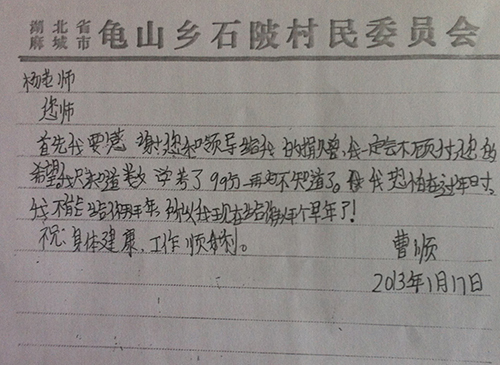 湖北省麻城市龟山乡石陂村民委员会
杨老师
您师
首先我要您谢您和领导给我的捐只兽,我一定会不顾对您的
希望我只知道数学考了99分再也不知道了。我恐怕在过年时
我不能给您拜年所以我现在给您拜个早年了!
祝:身体健康,工作顺利。
曹顺
2013年1月17日